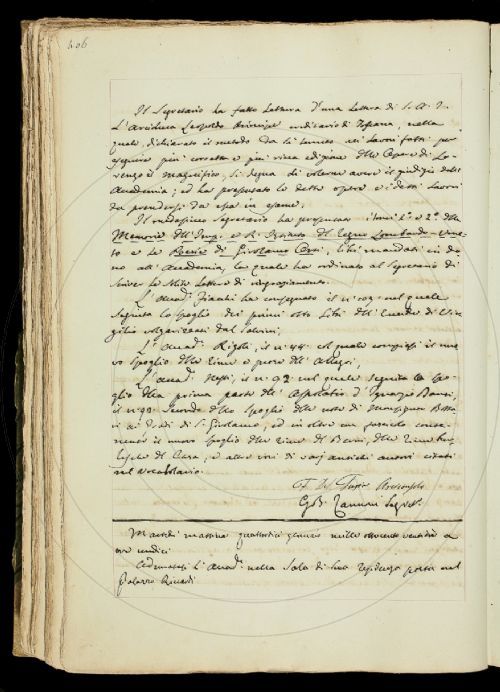 406
Il Segretario ha fatto Lettura d'una Lettera di S. A. I.
L'Arciduca Leopoldo Principe ereditario di Toscana, nella
quale dichiarato il metodo da se tenuto nei Lavori fatti per
eseguire più corretta e più ricca edizione delle Opere di Lo-
renzo il magnifico, si degna di volerne avere il giudizio dell'
Accademia; ed ha presentato le dette opere e i detti Lavori
da prendersi da essa in esame.
Il medesimo Segretario ha presentato i tomi 1° e 2° delle
Memorie dell'Imp. e R. Istituto del Regno Lombardo-Vene-
to e le Poesie di Girolamo libri mandati in do-
no all'Accademia, la quale ha ordinato al Segretario di
scrivere le solite Lettere di ringraziamento.
L'Accad. Fiacchi ha consegnato il n° nel quale
seguita lo spoglio dei primi otto Libri dell'Eneide di Vir-
gilio volgarizzati dal Salvini;
L'Accad. Rigoli, il n° 44. il quale il nuo-
vo spoglio delle rime e prose dell'Allegri;
L'Accad. il n° 92 nel quale seguita lo spo-
glio della prima parte dell'
il n° 93 secondo dello spoglio delle note di Monsignor Botta-
ri ai Gradi di S. Girolamo, ed in oltre un conte-
nente il nuovo spoglio delle rime del Berni, delle rime bur-
lesche del Casa, e altre voci di varj antichi autori citati
nel Vocabolario.
Arciconsolo
G. B. Zannoni Segret.
Martedì mattina quattordici gennajo mille ottocento ventitré a
ore undici
Adunatasi l'Accad. nella Sala di sua residenza posta nel
Palazzo Riccardi